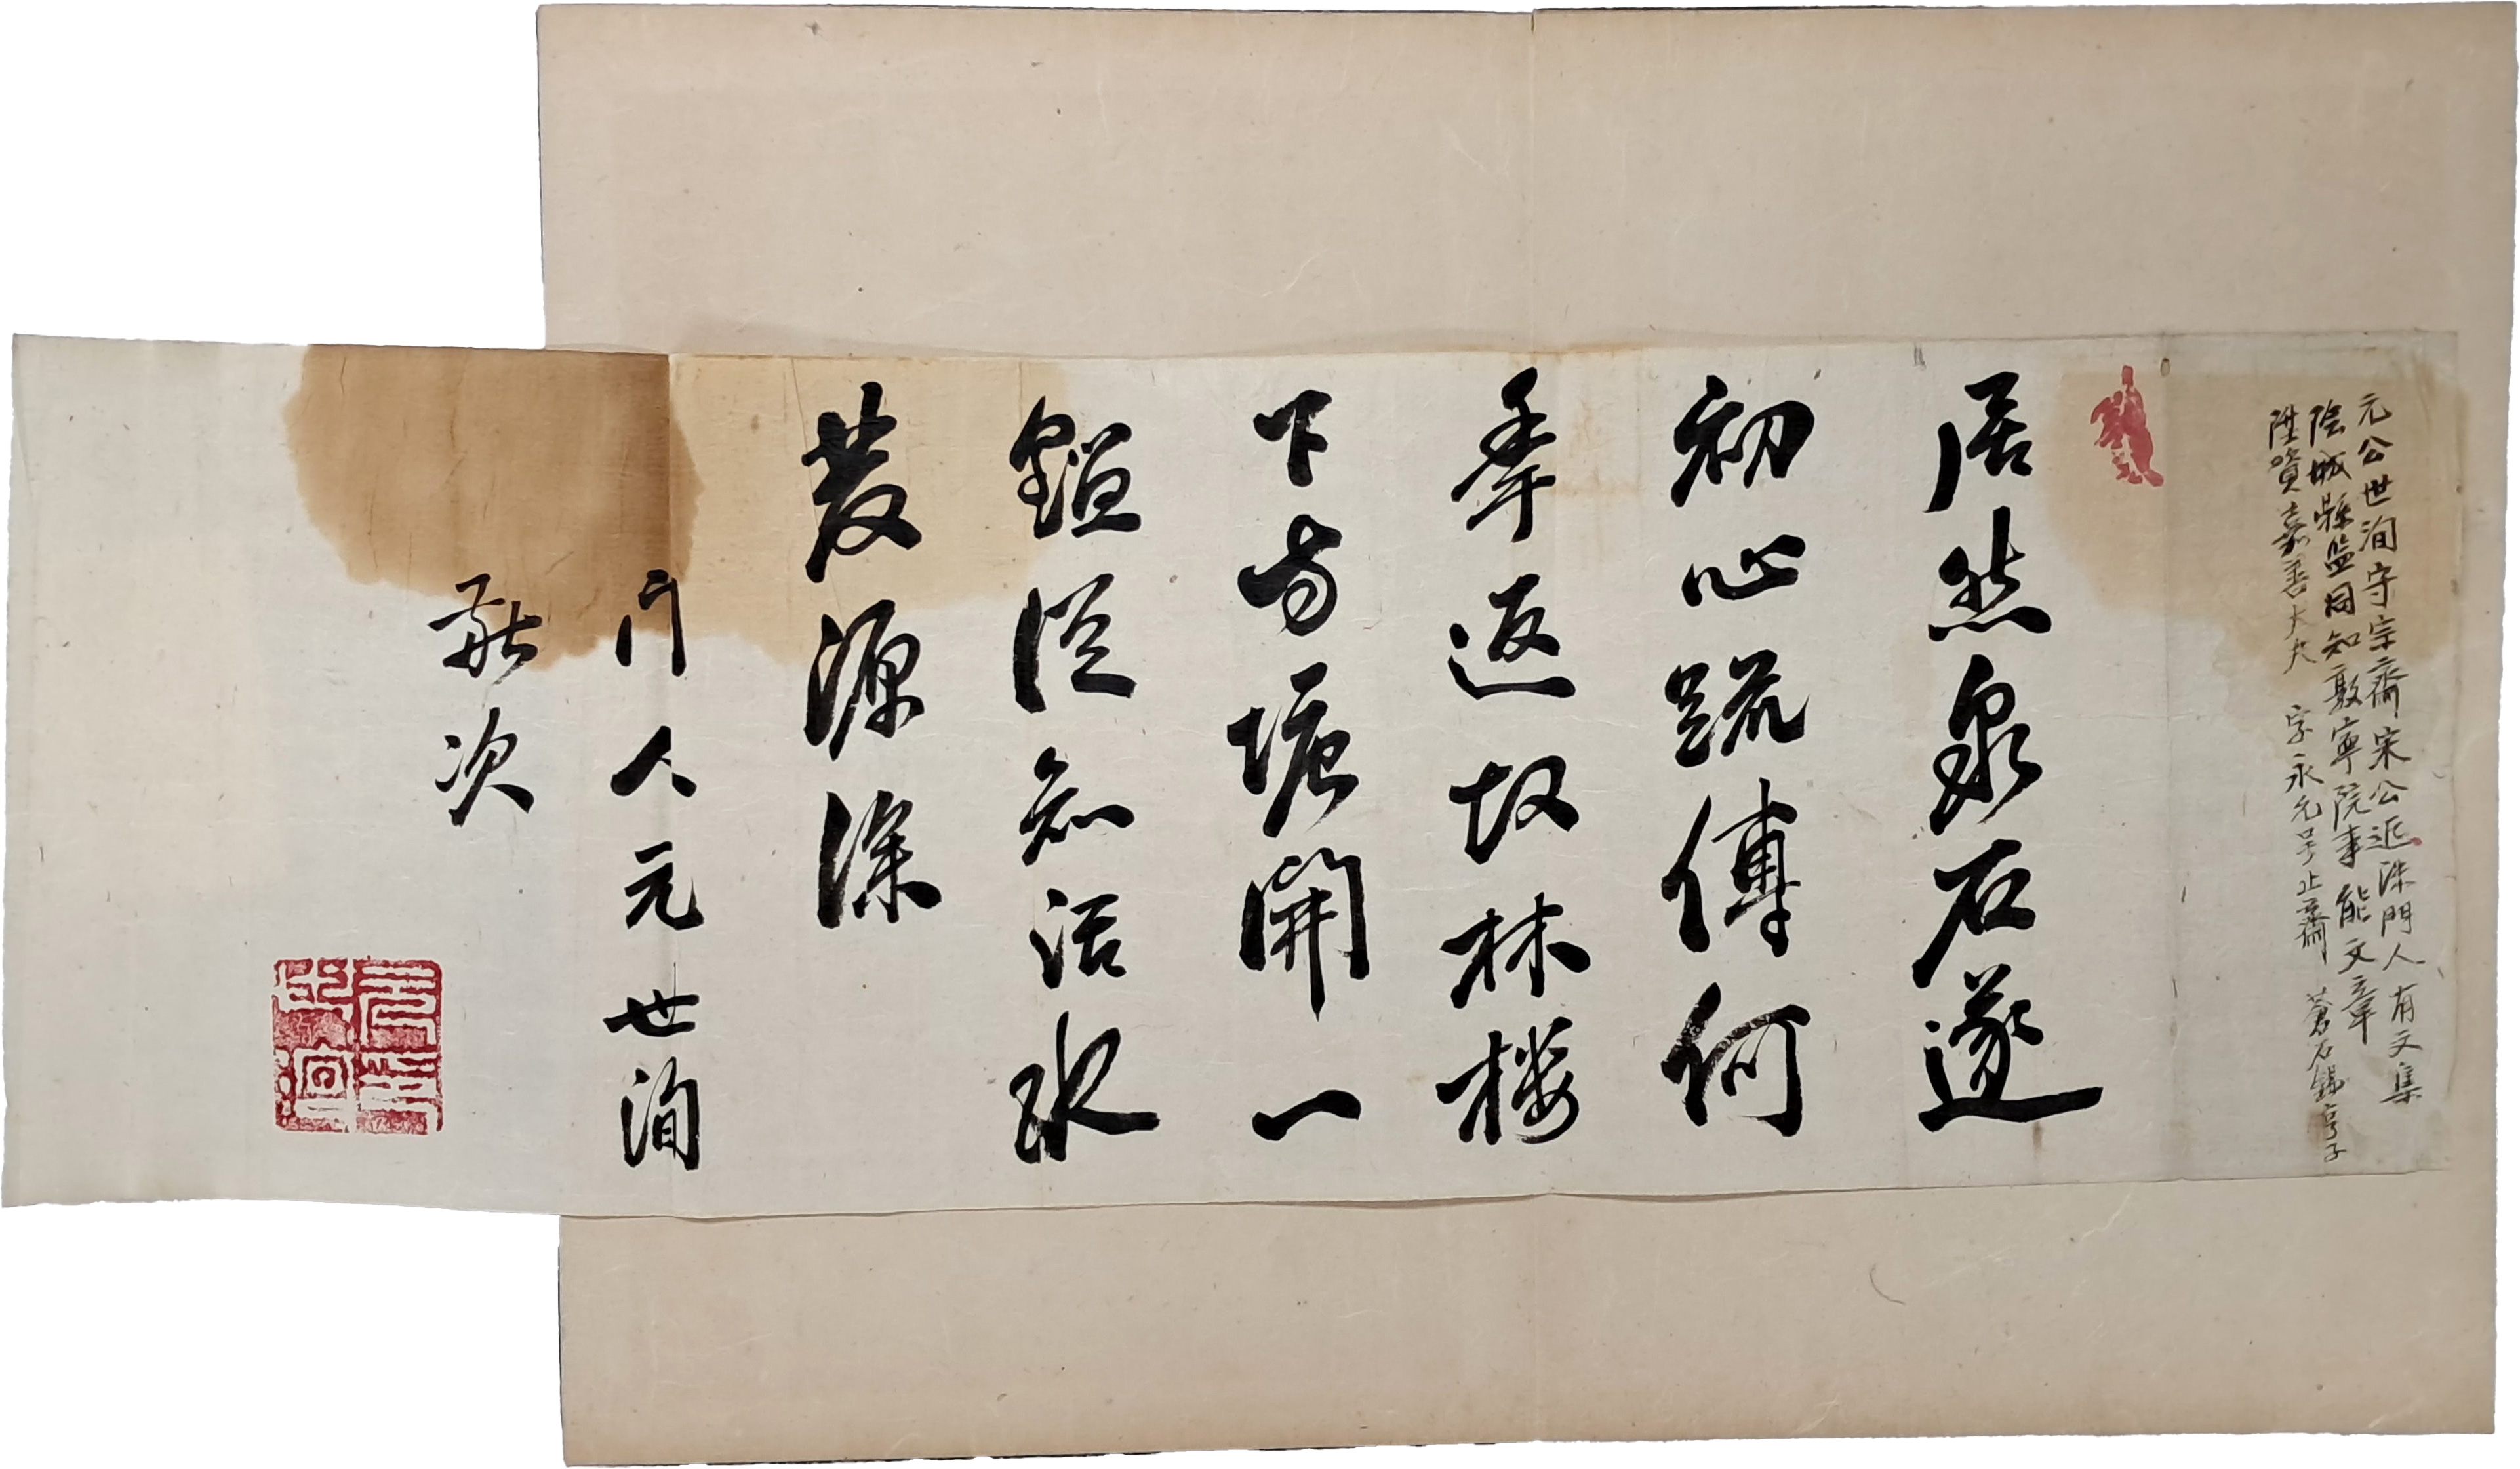 元公世洵守宗齋宋公近洙門人 有文集
陰城縣監同知敦寧院事能文章
陞資嘉善大夫 字永允号止齋 蒼石錫亨子
居然泉石遂
初心疏傅何
年返故林樓
下方塘開一
鑑從知活水
發源深
門人元世洵
敬次
元世洵印